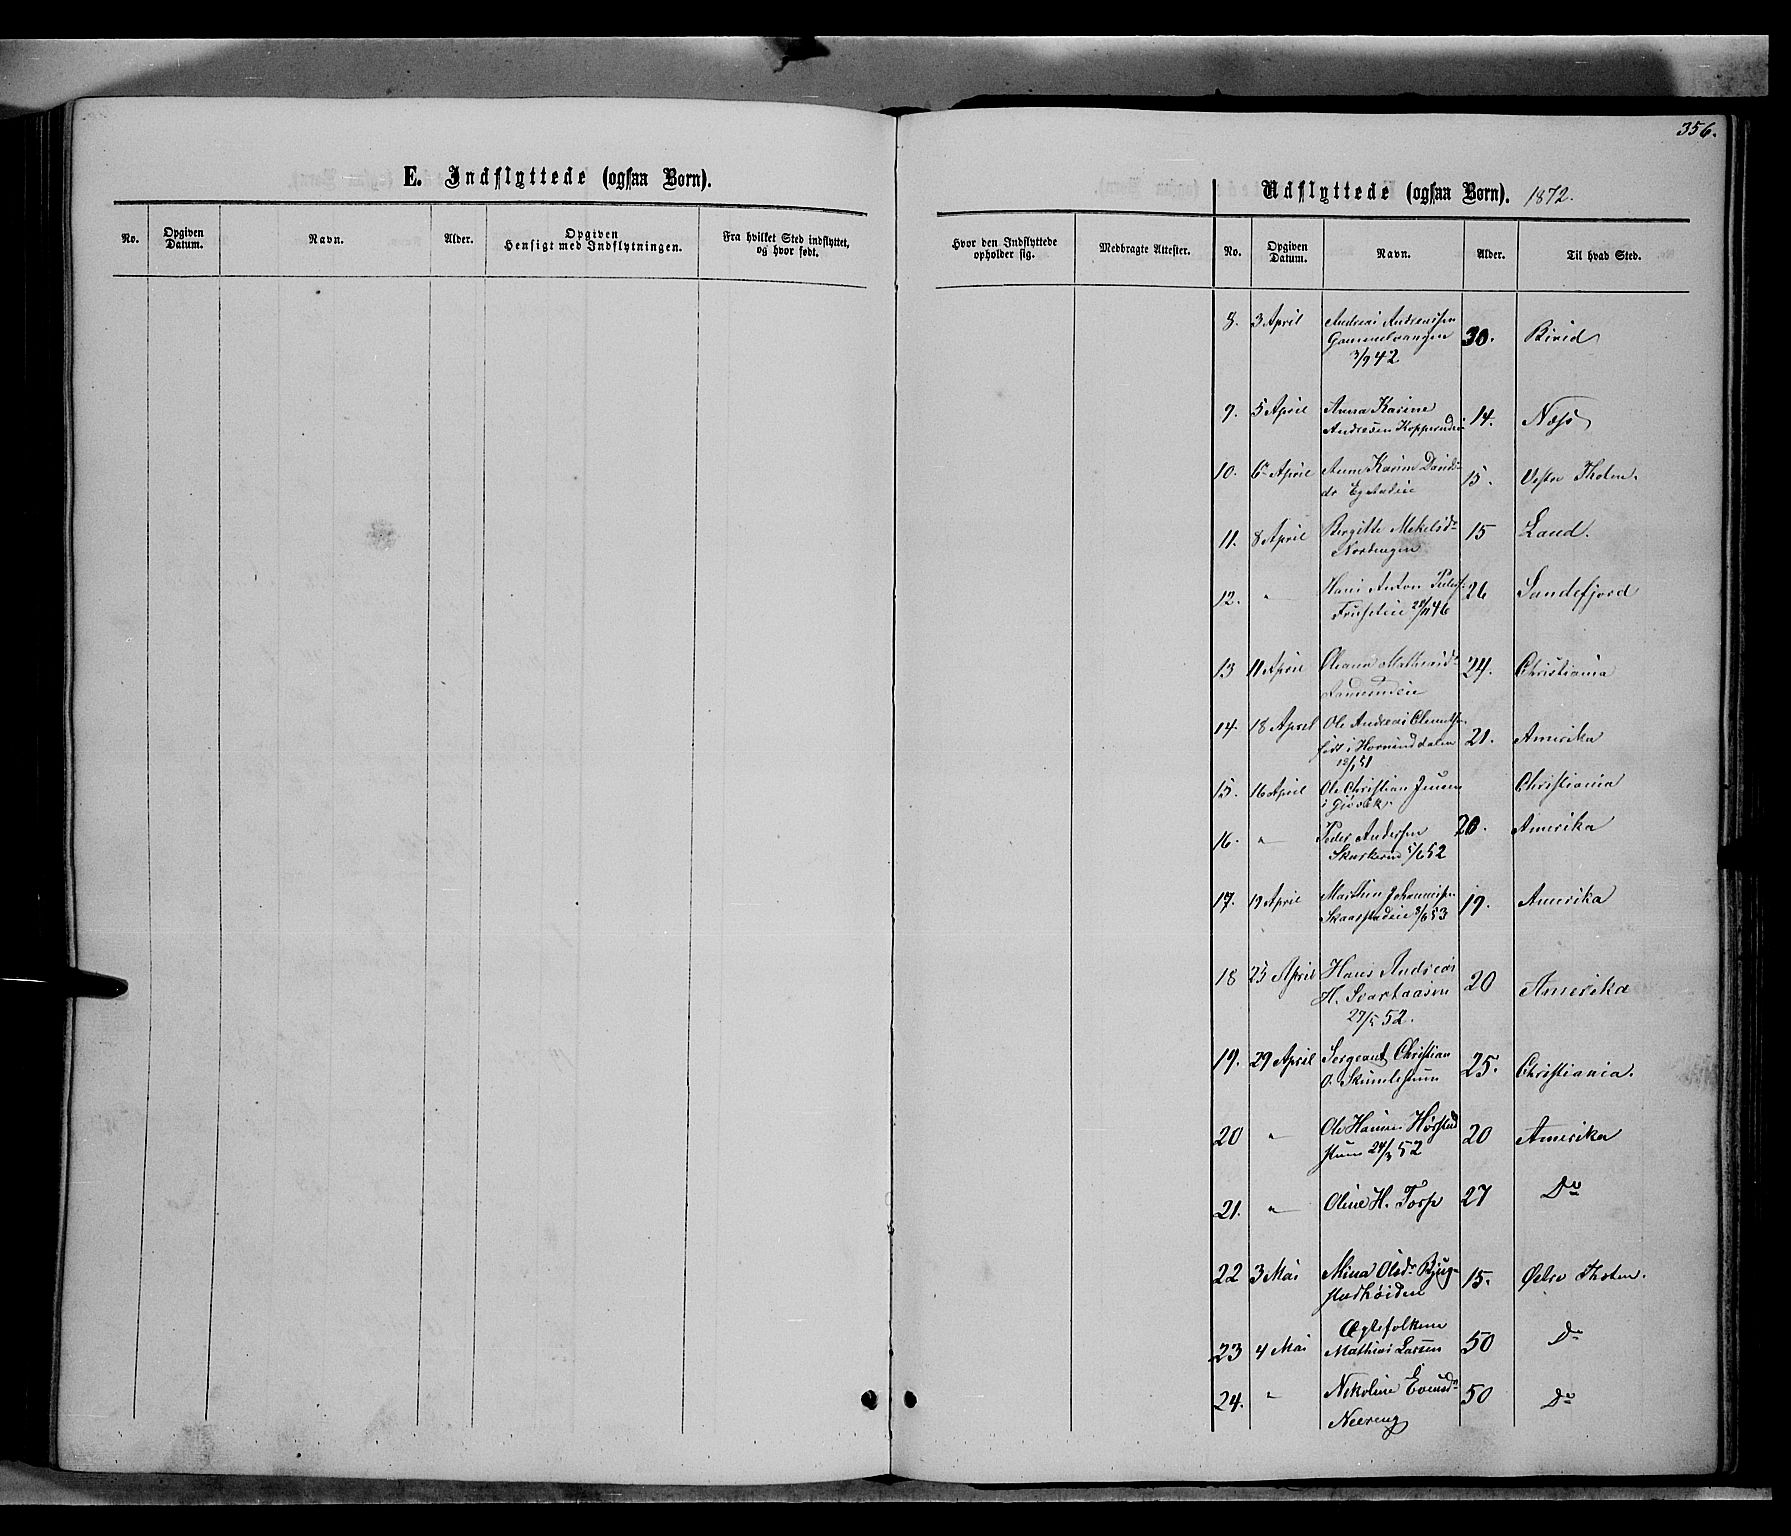 356.
E. Indflyttede (ogsaa Børn).
No.
Opgiven Datum.
Navn.
Alder.
Opgiven Hensigt med Indflytningen.
Fra hvilket Sted indflyttet, og hvor født.
Udflyttede (ogsaa Børn). 1872.
Hvor den Indflyttede opholder sig.
Medbragte Attester.
No.
Opgiven Datum.
Navn.
Alder.
Til hvad Sted.
8. 3 April Andreas Andreassen 30. Birid
3/9 42
9. 5 April Anna Karine 14. Næss
Andresen
10. 6 April Anne Karine Davids- 15. Vestre Thoten.
dr
11. 8 April Birgitte Mikelsdr 15 Land.
12. " Hans Anton Peders. 26 Sandefjord
46
13 11 April Oleana Mathiasdr 24. Christiania
14. 18 April Ole Andreas Clemetsen 21. Amerika
født i Hornindalen
51
15. 16 April Ole Christian Jensen Christiania
i Gjøvik.
16. " Peder Andersen 20. Amerika
5/6 52
17. 19 April Marthin Johannesen 19. Amerika
53
18 25 April Hans Andreas 20 Amerika
H. Svartaasen
27/5 52.
19. 29 April Sergeant Christian 25. Christiania.
O.
20 " Ole Hansen 20 Amerika
24/3 52
21. " Oline H. Torp 27 Do
22 3 Mai Mina Olsdr 15. Østre Thoten.
23 4 Mai Ægtefolkene 50 Do
Mathias Larsen
24. " Nikoline Evensdr 50 Do
Neereng